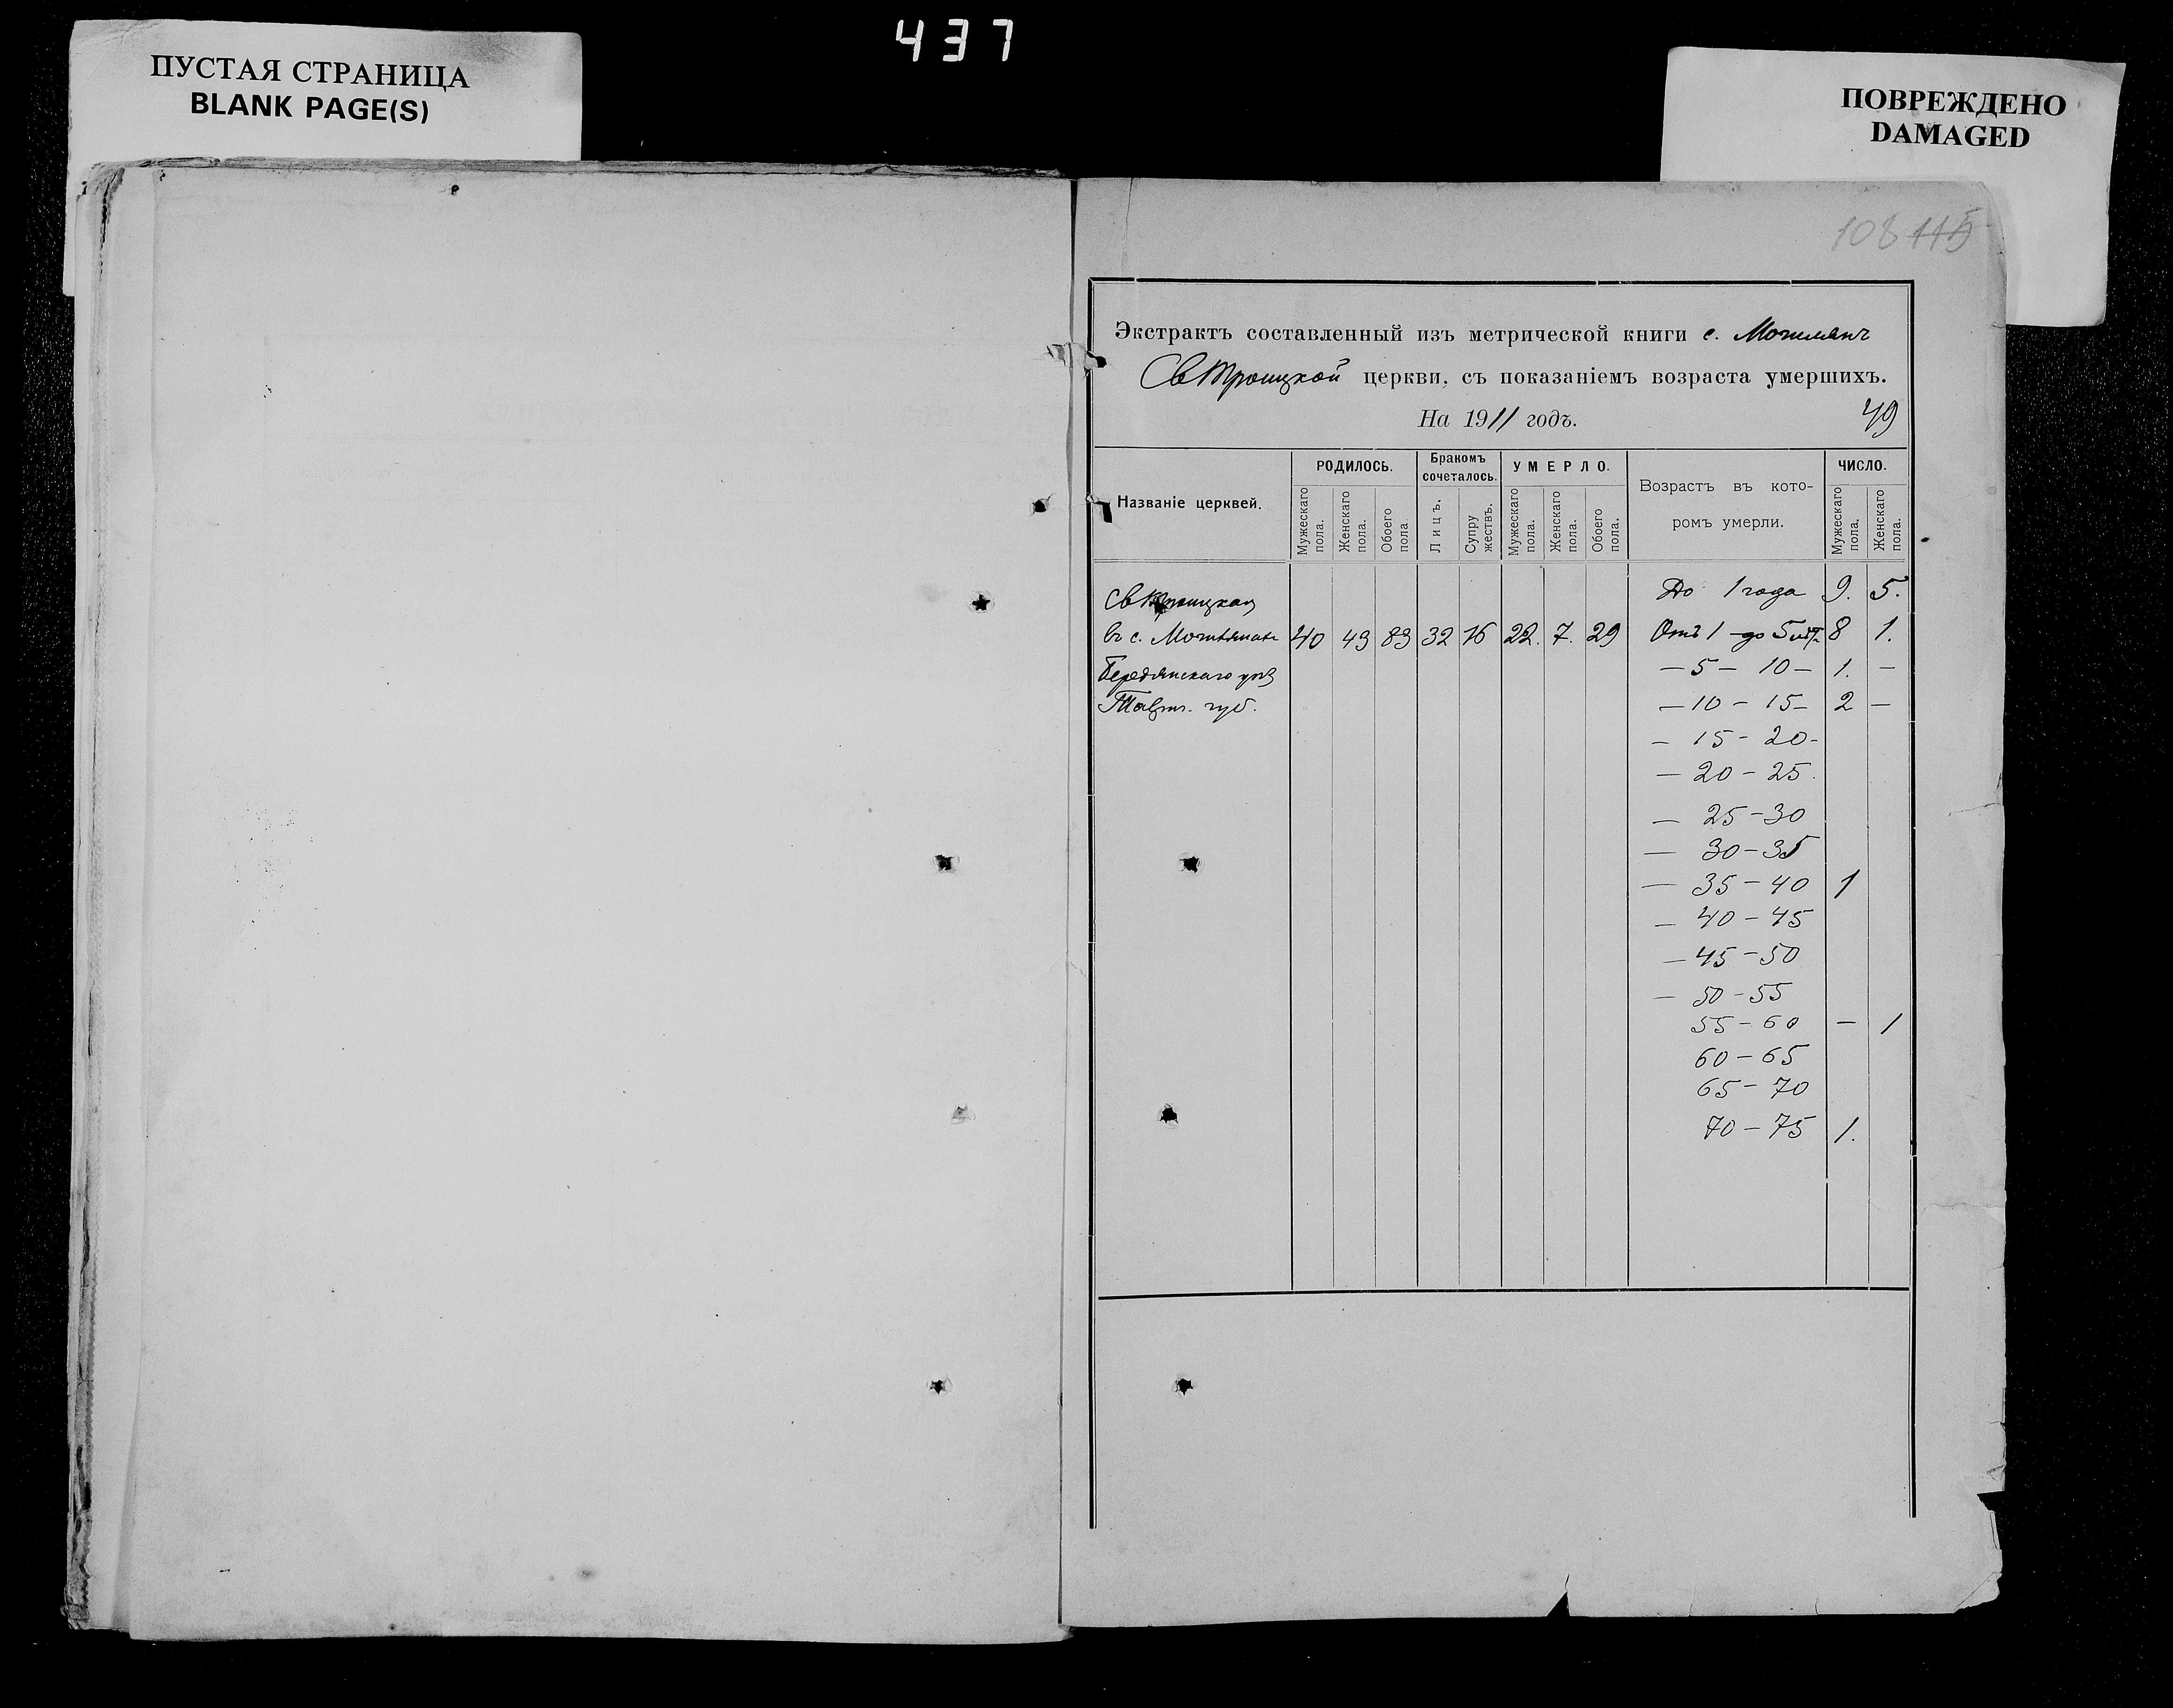 437
ПУСТАЯ СТРАНИЦА
BLANK PAGE(S)
ПОВРЕЖДЕНО
DAMAGED
108 115
Экстрактъ составленный изъ метрической книги с.
Св Троицкой церкви, съ показаніемъ возраста умершихъ.
На 1911 годъ.
49
Названіе церквей.
РОДИЛОСЬ.
Бракомъ сочеталось.
УМЕРЛО.
Возрастъ въ кото-
ромъ умерли.
ЧИСЛО.
Мужескаго пола.
Женскаго пола.
Обоего пола
Лицъ.
Супру жествъ.
Мужескаго пола.
Женскаго пола.
Обоего пола.
Мужескаго пола.
Женскаго пола.
Св Троицкая До 1 года 9. 5.
въ с. 40 43 83 32 16 22. 7. 29 Отъ 1 до 5 8 1.
Бердянскаго — 5 — 10 — 1. —
губ. — 10 — 15 — 2 —
— 15 - 20 -
— 20 - 25.
— 25 - 30
— 30 - 35
— 35 - 40 1
— 40 - 45
— 45 - 50
— 50 - 55
55 - 60 — 1
60 - 65
65 - 70
70 - 75 1.